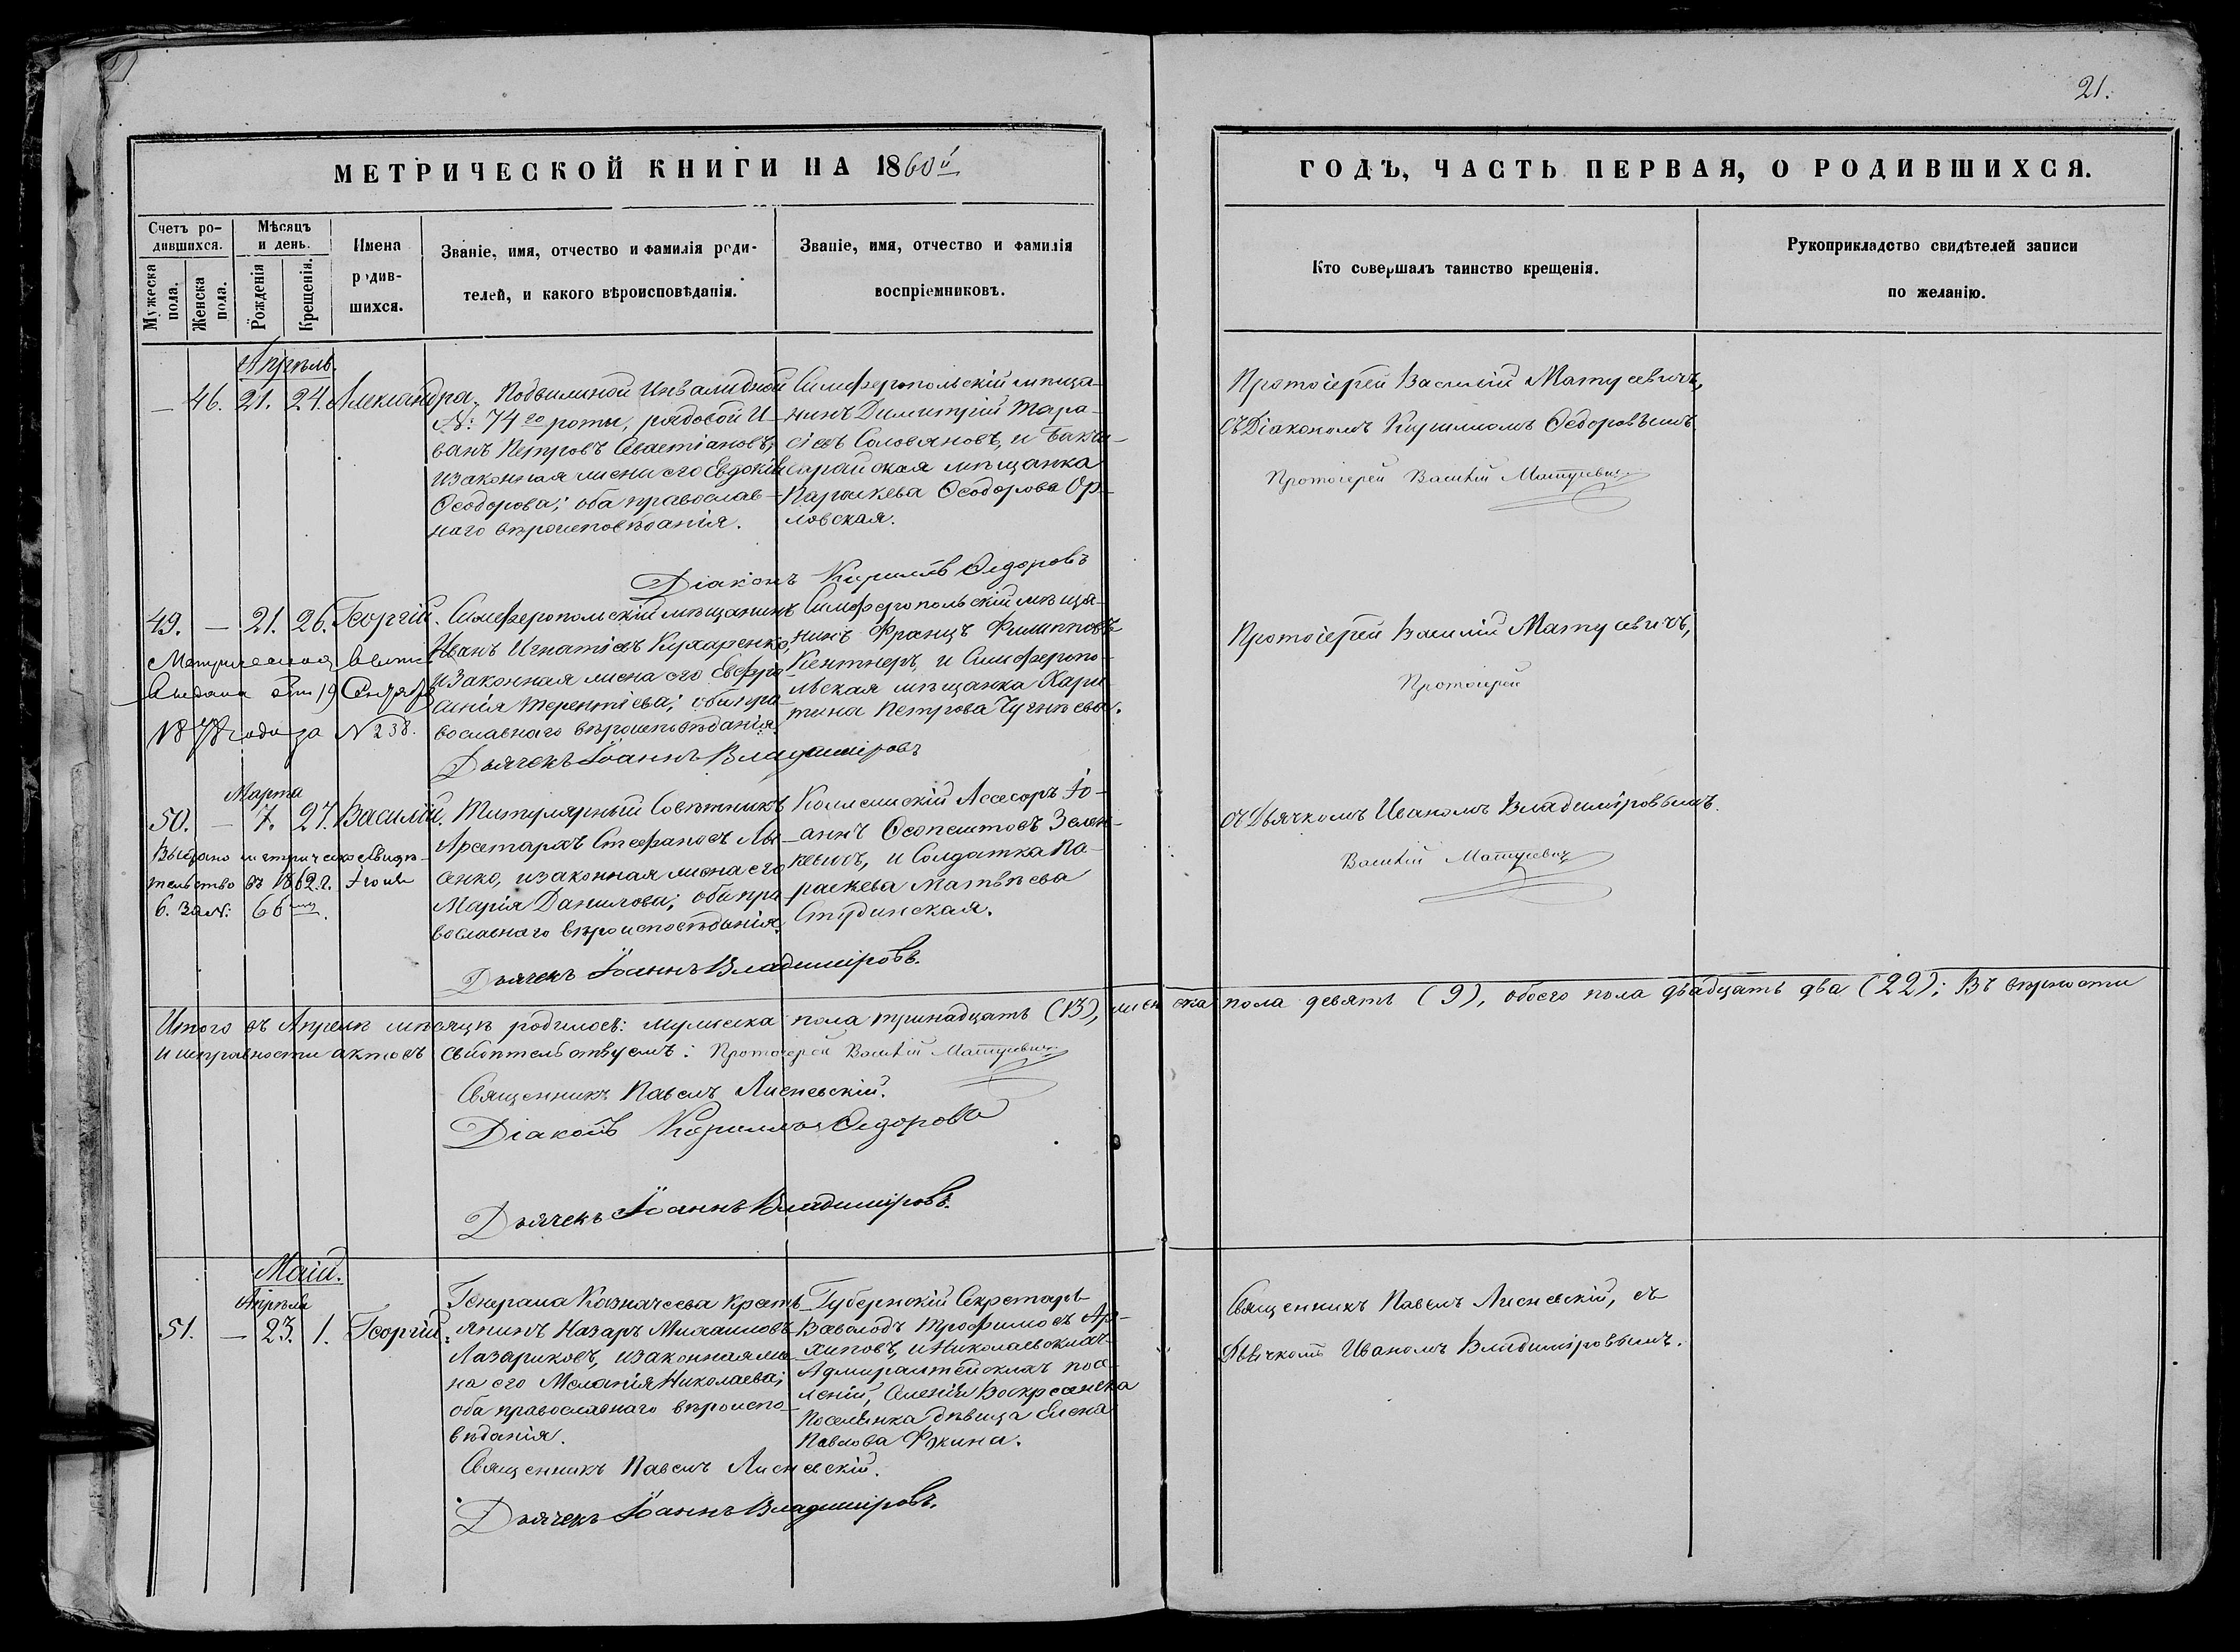 21.
МЕТРИЧЕСКОЙ КНИГИ НА 1860й
ГОДЪ, ЧАСТЬ ПЕРВАЯ, О РОДИВШИХСЯ.
Счетъ ро-
дившихся.
Мужеска пола.
Женска пола.
Мѣсяцъ
и день.
Рожденія
Крещенія.
Имена
родив-
шихся.
Званіе, имя, отчество и фамилія роди-
телей, и какого вѣроисповѣданія.
Званіе, имя, отчество и фамилія
воспріемниковъ.
Кто совершалъ таинство крещенія.
Рукоприкладство свидѣтелей записи
по желанію.
Апрѣль.
— 46. 21. 24. Александра.
Подвижной Инвалидной
№: 74го роты, рядовой И-
ванъ Петровъ Севастіановъ,
и законная жена его Евдокія
Ѳеодорова; оба православ-
наго вѣроисповѣданія.
Симферопольскій мѣща-
нинъ Димитрій Тара-
сіевъ Соловяновъ, и Бакчи-
сарайская мѣщанка
Параскева Ѳеодорова Ор-
ловская.
Протоіерей Василій Матусевичъ,
съ Діакономъ Кирилломъ Ѳедоровымъ
Протоіерей Василій Матусевичъ
Діаконъ Кириллъ Ѳедоровъ
49. — 21. 26. Георгій.
Метрическая
Выдана 19 Сентября
1878 года за № 238.
Симферопольскій мѣщанинъ
Иванъ Игнатіевъ Кухаренко,
и законная жена его Евфро-
синія Терентіева; оба пра-
вославнаго вѣроисповѣданія.
Симферопольскій мѣща-
нинъ Францъ Филипповъ
Кентнеръ, и Симферопо-
льская мѣщанка Хари-
тина Петрова Чугнѣева.
Протоіерей Василій Матусевичъ,
Протоіерей
Дьячекъ Іоаннъ Владиміровъ
Марта
50. — 7. 27. Василій.
Выдано метрическ. свидѣ-
тельство въ 1862. г. Іюля
6. за №: 66
Титулярный Совѣтникъ
Аристархъ Стефановъ Лы-
сенко, и законная жена его
Марія Данилова; оба пра-
вославнаго вѣроисповѣданія.
Коллежскій Ассесоръ Іо-
аннъ Ѳеопемптовъ Зелен-
кевичъ, и Солдатка Па-
раскева Матвѣева
Студинская.
съ Дьячкомъ Иваномъ Владиміровымъ.
Василій Матусевичъ
Дьячекъ Іоаннъ Владиміровъ.
Итого въ Апрелѣ мѣсяцѣ родилось: мужеска пола тринадцать (13), женска пола девять (9), обоего пола двадцать два (22); Въ вѣрности
и исправности актовъ свидѣтельствуемъ: Протоіерей Василій Матусевичъ
Священникъ Павелъ Лисневскій.
Діаконъ Кириллъ Ѳедоровъ
Дьячекъ Іоаннъ Владиміровъ.
Маій.
Апрѣля
51. — 23. 1. Георгій.
Генерала Казначеева крестъ-
янинъ Назаръ Михаиловъ
Лазариковъ, и законная же-
на его Меланія Николаева;
оба православнаго вѣроиспо-
вѣданія.
Губернскій Секретарь
Всеволодъ Трофимовъ Ар-
хиповъ, и Николаевскихъ
Адмиралтейскихъ посе-
леній, селенія Воскресенска
Поселянка, дѣвица Елена
Павлова Фокина.
Священникъ Павелъ Лисневскій, съ
Дьячкомъ Иваномъ Владиміровымъ.
Священникъ Павелъ Лисневскій.
Дьячекъ Іоаннъ Владиміровъ.